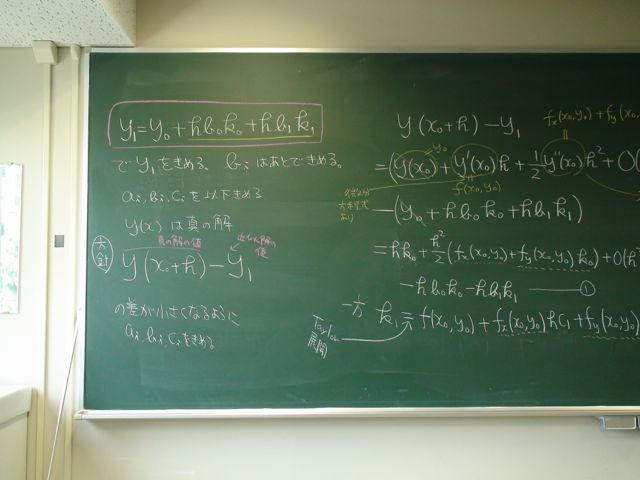 y₁=y₀+hb₀k₀+hb₁k₁
で y₁をきめる。 bᵢ はあとできめる。
aᵢ, bᵢ, cᵢ を以下きめる
y(x) は真の解
方針
真の解の値
近似解の値
y(x₀+h)-y₁
の差が小さくなるように
aᵢ, bᵢ, cᵢをきめる
y(x₀+h)-y₁
fx(x₀,y₀)+fy(x₀,
=(y(x₀)+y'(x₀)h+1/2 y''(x₀)h²+O(
y₀
f(x₀,y₀)
方程式
より
-(y₀+hb₀k₀+hb₁k₁)
=hk₀+h²/2(fx(x₀,y₀)+fy(x₀,y₀)k₀)+O(h³
-hb₀k₀-hb₁k₁ ①
一方 k₁=f(x₀,y₀)+fx(x₀,y₀)hc₁+fy(x₀,y₀)
Taylor
展開